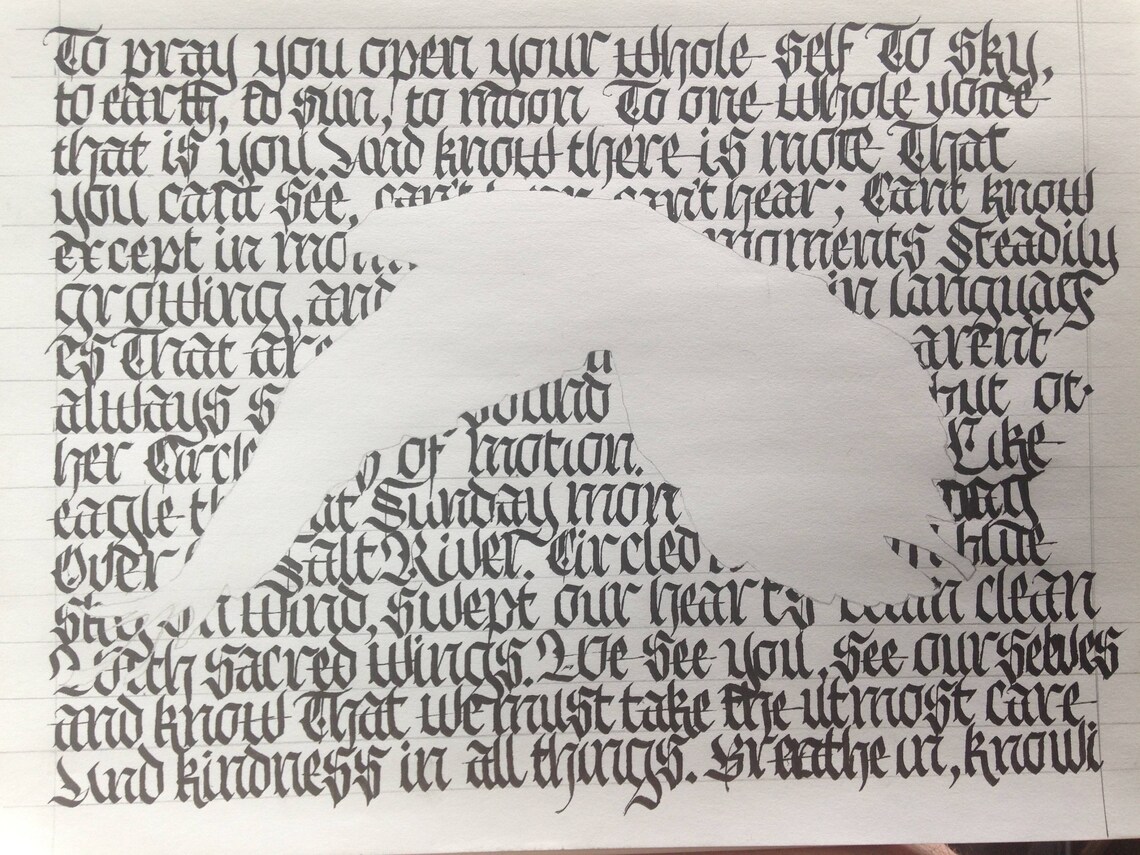 To pray you open your whole self To sky,
to earth, to sun, to moon To one whole voice
that is you. And know there is more That
you cant see, can't can't hear; Cant know
Except in mo moments Steadily
growing, and in languag-
es That are arent
always s sound but ot-
her Circl of motion. Like
eagle th at Sunday morn
Over Salt River. Circled blue
sky on Wind, swept our hearts clean
With sacred wings. We see you, see ourselves
and know That we must take the utmost care
And kindness in all things. Breathe in, knowi